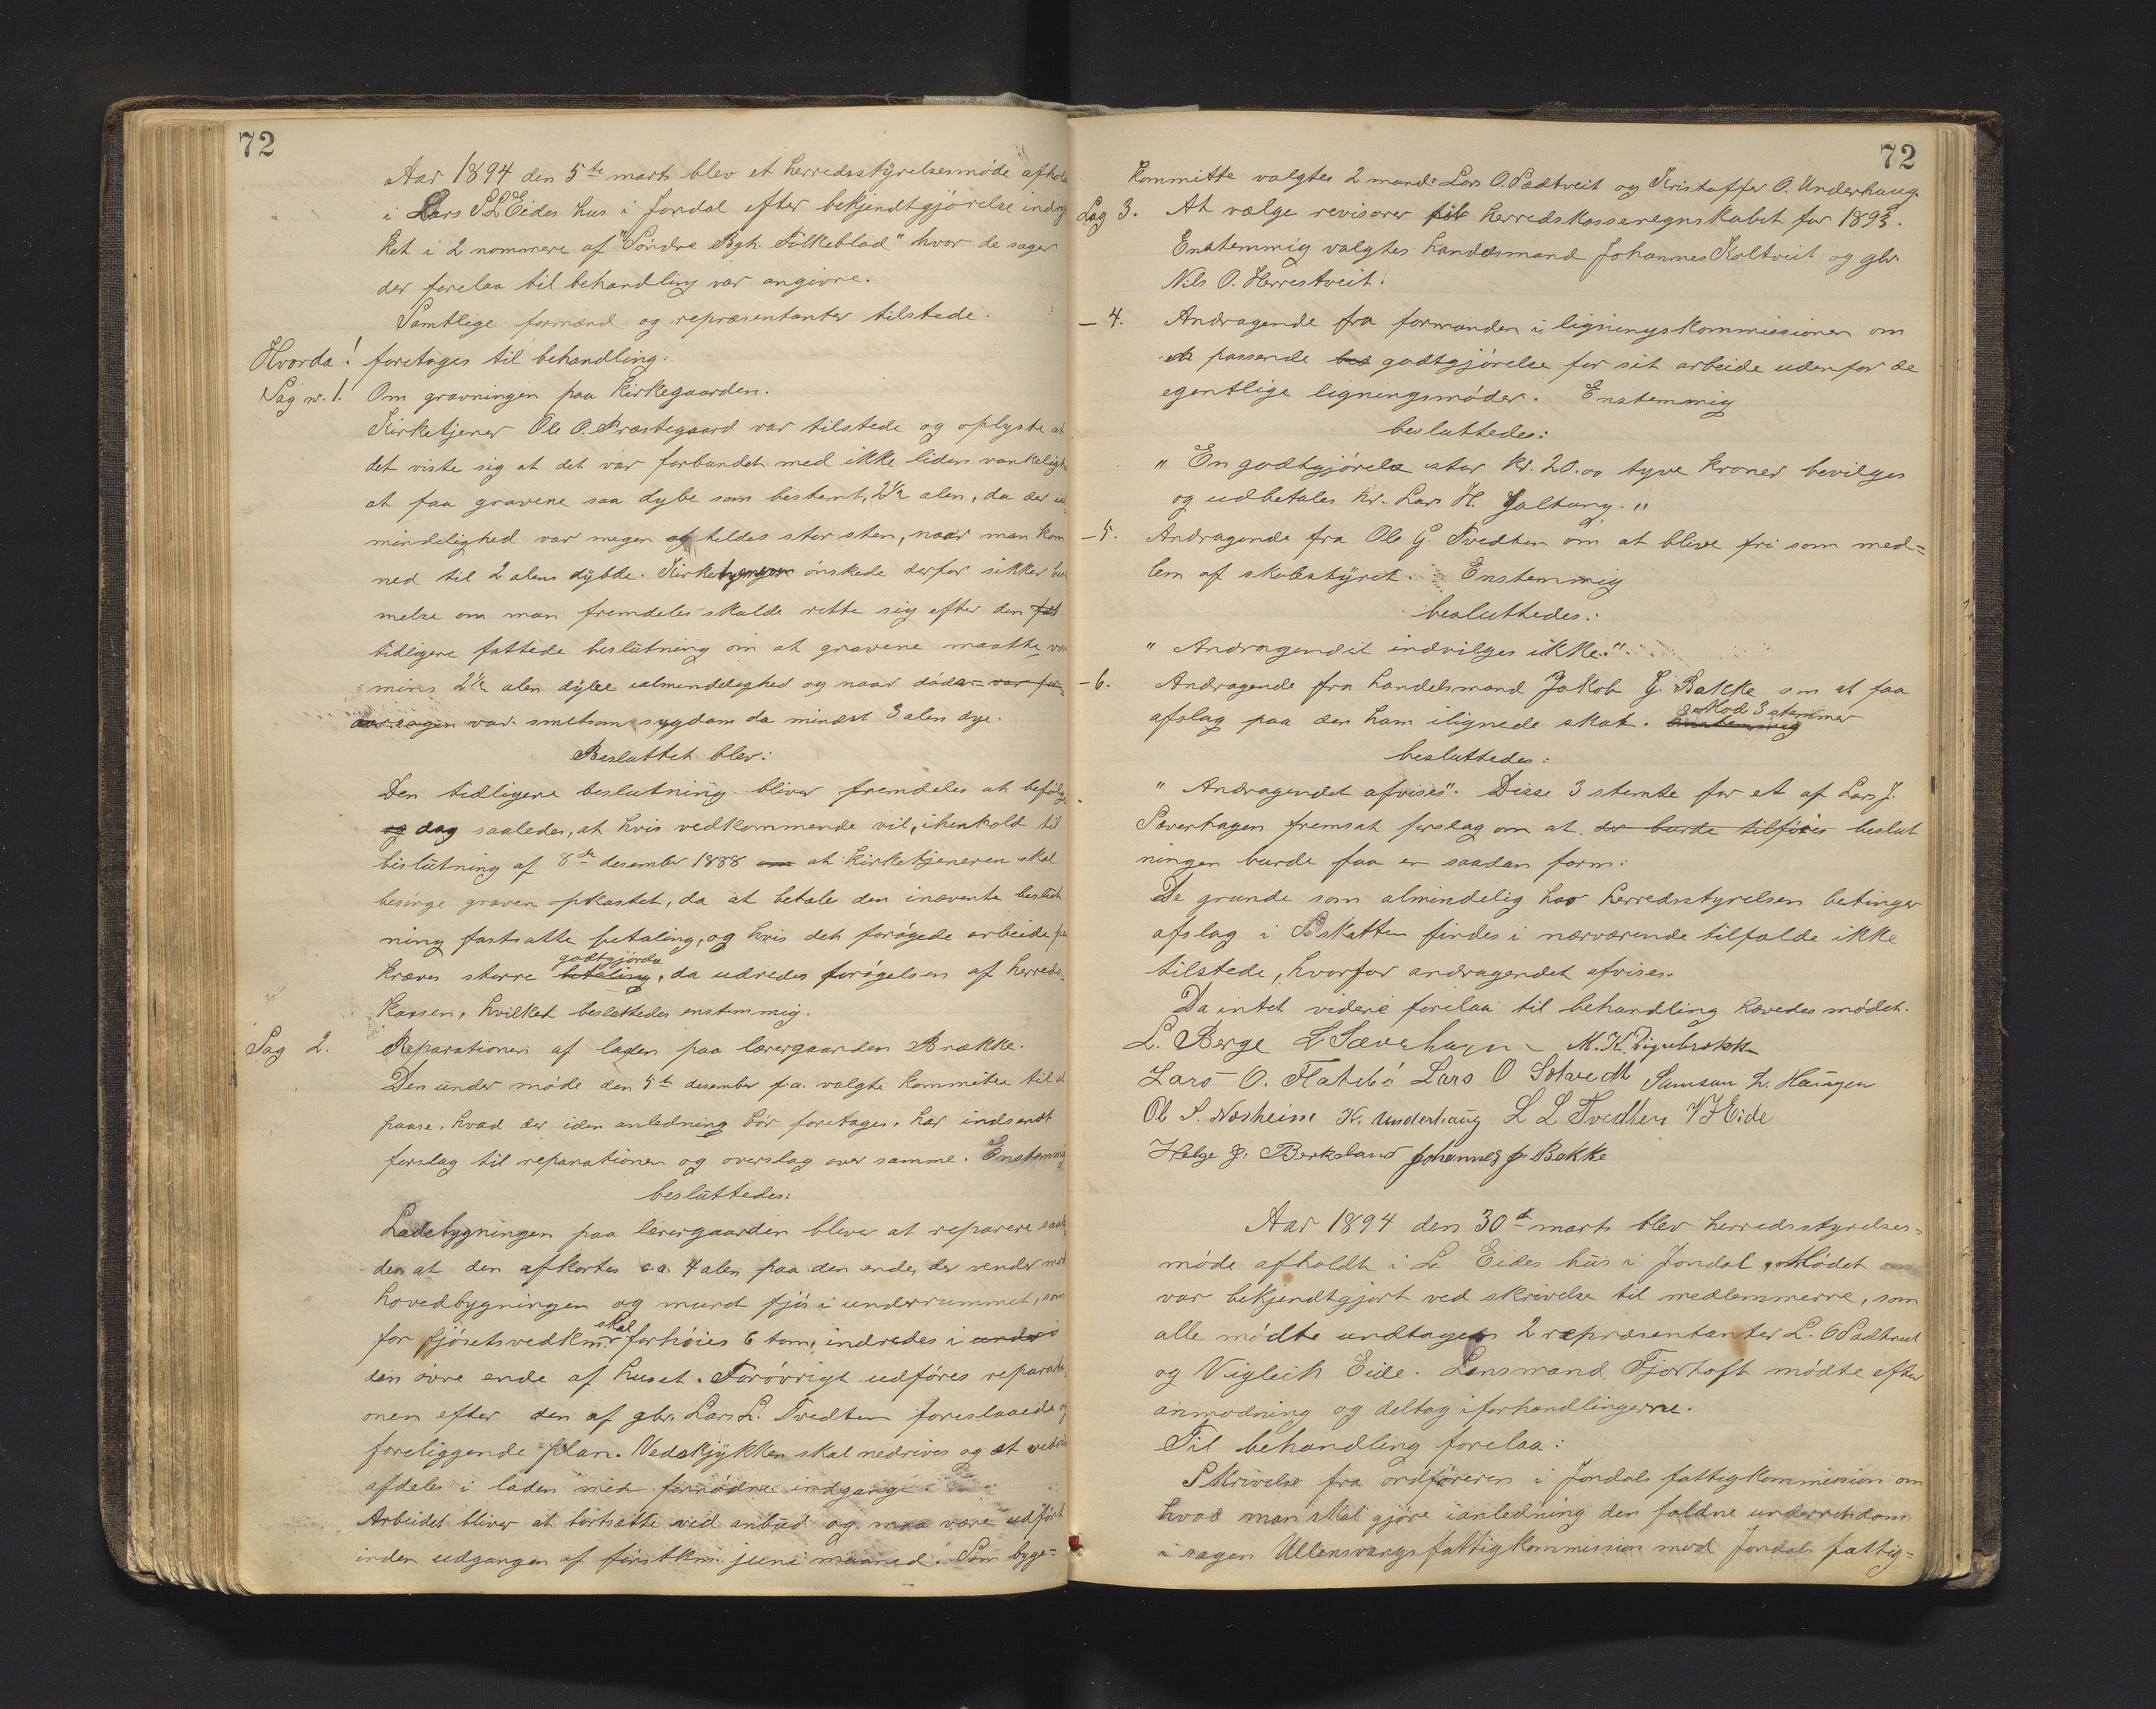 72
Aar 1894 den 5te marts blev et herredsstyrelsesmøde afhol
i Lars S L Eides hus i Jondal efter bekjendtgjørelse indryk
ket i 2 nommere af "Søndre Bgh. Folkeblad" hvor de sager
der forelaa til behandling var angivne.
Samtlige formænd og repræsentanter tilstede.
Hvorda! foretages til behandling:
Sag nr. 1. Om gravningen paa kirkegaarden.
Kirketjener Ole O. Præstegaard var tilstede og oplyste at
det viste sig at det var forbundet med ikke liden vankeligh
at faa gravene saa dybe som bestemt, 2½ alen, da der i al
mindelighed var megen og tildels stor sten, naar man kom
ned til 2 alens dybde. Kirketjeneren ønskede derfor sikker be
melse om man fremdeles skulde rette sig efter den fatt
tidligere fattede beslutning om at gravene maatte vær
mins 2½ alen dybe i almindelighed og naar døds- var for
aarsagen var smitsom sygdom da mindst 3 alen dye.
Besluttet blev:
Den tidligere beslutning bliver fremdeles at befølge
og dog saaledes, at hvis vedkommende vil, i henhold til
beslutning af 8de desember 1888 om at kirketjeneren skal
besørge graven opkastet, da at betale den i nævnte beslut
ning fastsatte betaling, og hvis det forøgede arbeide
kræves større betaling, godtgjørelse da udredes forøgelsen af herreds-
kassen, hvilket besluttedes enstemmig.
Sag 2. Reparationen af laden paa lærergaarden Brække.
Den under møde den 5te desember f.a. valgte kommitee til at
paase, hvad der i den anledning bør foretages, har indsendt
forslag til reparationen og overslag over samme. Enstemmig
besluttedes:
Ladebygningen paa lærergaarden bliver at reparere saale
des at den afkortes ca. 7 alen paa den ende, der vender mod
hovedbygningen og muret fjøs i underrummet, som
for fjøsets vedkm. skal forhøies 6 tom, indredes i under
den øvre ende af huset. Forøvrigt udføres reparati
onen efter den af gbr. Lars L. Tvedten foreslaaede og
foreliggende plan. Vedskjykken skal nedrives og et vedrum
afdeles i laden med fornødne indgange.
Arbeidet bliver at bortsætte ved anbud og maa være udført
inden udgangen af førstkm. juni maaned. Som byge-
72
kommitte valgtes 2 mand: Lars O. Sædtveit og Kristoffer O. Underhaug.
Sag 3. At vælge revisorer til herredskasseregnskabet for 1893.
Enstemmig valgtes handelsmand Johannes Koltveit og gbr.
Nils O. Herrestveit.
- 4. Andragende fra formanden i ligningskommissionen om
en passende bet godtgjørelse for sit arbeide udenfor de
egentlige ligningsmøder. Enstemmig
besluttedes:
"En godtgjørelse stor kr. 20. og tyve kroner bevilges
og udbetales hr. Lars H. Jaltung."
- 5. Andragende fra Ole G. Tvedten om at blive fri som med-
lem af skolestyret. Enstemmig
besluttedes:
"Andragendet indvilges ikke."
- 6. Andragende fra handelsmand Jakob G. Bakke om at faa
afslag paa den ham ilignede skat. Enstemmig Mod 3 stemmer
besluttedes:
"Andragendet afvises". Disse 3 stemte for et af Lars J.
Sæverhagen fremsat forslag om at der burde tilføies beslut
ningen burde faa en saadan form:
De grunde som almindelig hos herredsstyrelsen betinger
afslag i skatten findes i nærværende tilfælde ikke
tilstede, hvorfor andragendet afvises.
Da intet videre forelaa til behandling hævedes mødet.
L. Berge L Sæverhagen M. K. Digrebrekk
Lars O. Flatebø Lars O Solvedt Samson L. Haugen
Ol S. Næsheim K. Underhaug L L Tvedten V J Eide
Helge J. Berkeland Johannes J. Bakke
Aar 1894 den 30te marts blev herredsstyrelses-
møde afholdt i L. Eides hus i Jondal. Mødet om
var bekjendtgjort ved skrivelse til medlemmerne, som
alle mødte undtagen 2 repræsentanter L. O Sædtveit
og Vigleik Eide. Lensmand Fjørtoft mødte efter
anmodning og deltog i forhandlingerne.
Til behandling forelaa:
Skrivelse fra ordføreren i Jondals fattigkommission om
hvad man skal gjøre i anledning den faldne underretsdom
i sagen Ullensvangs fattigkommission mod Jondals fattig-